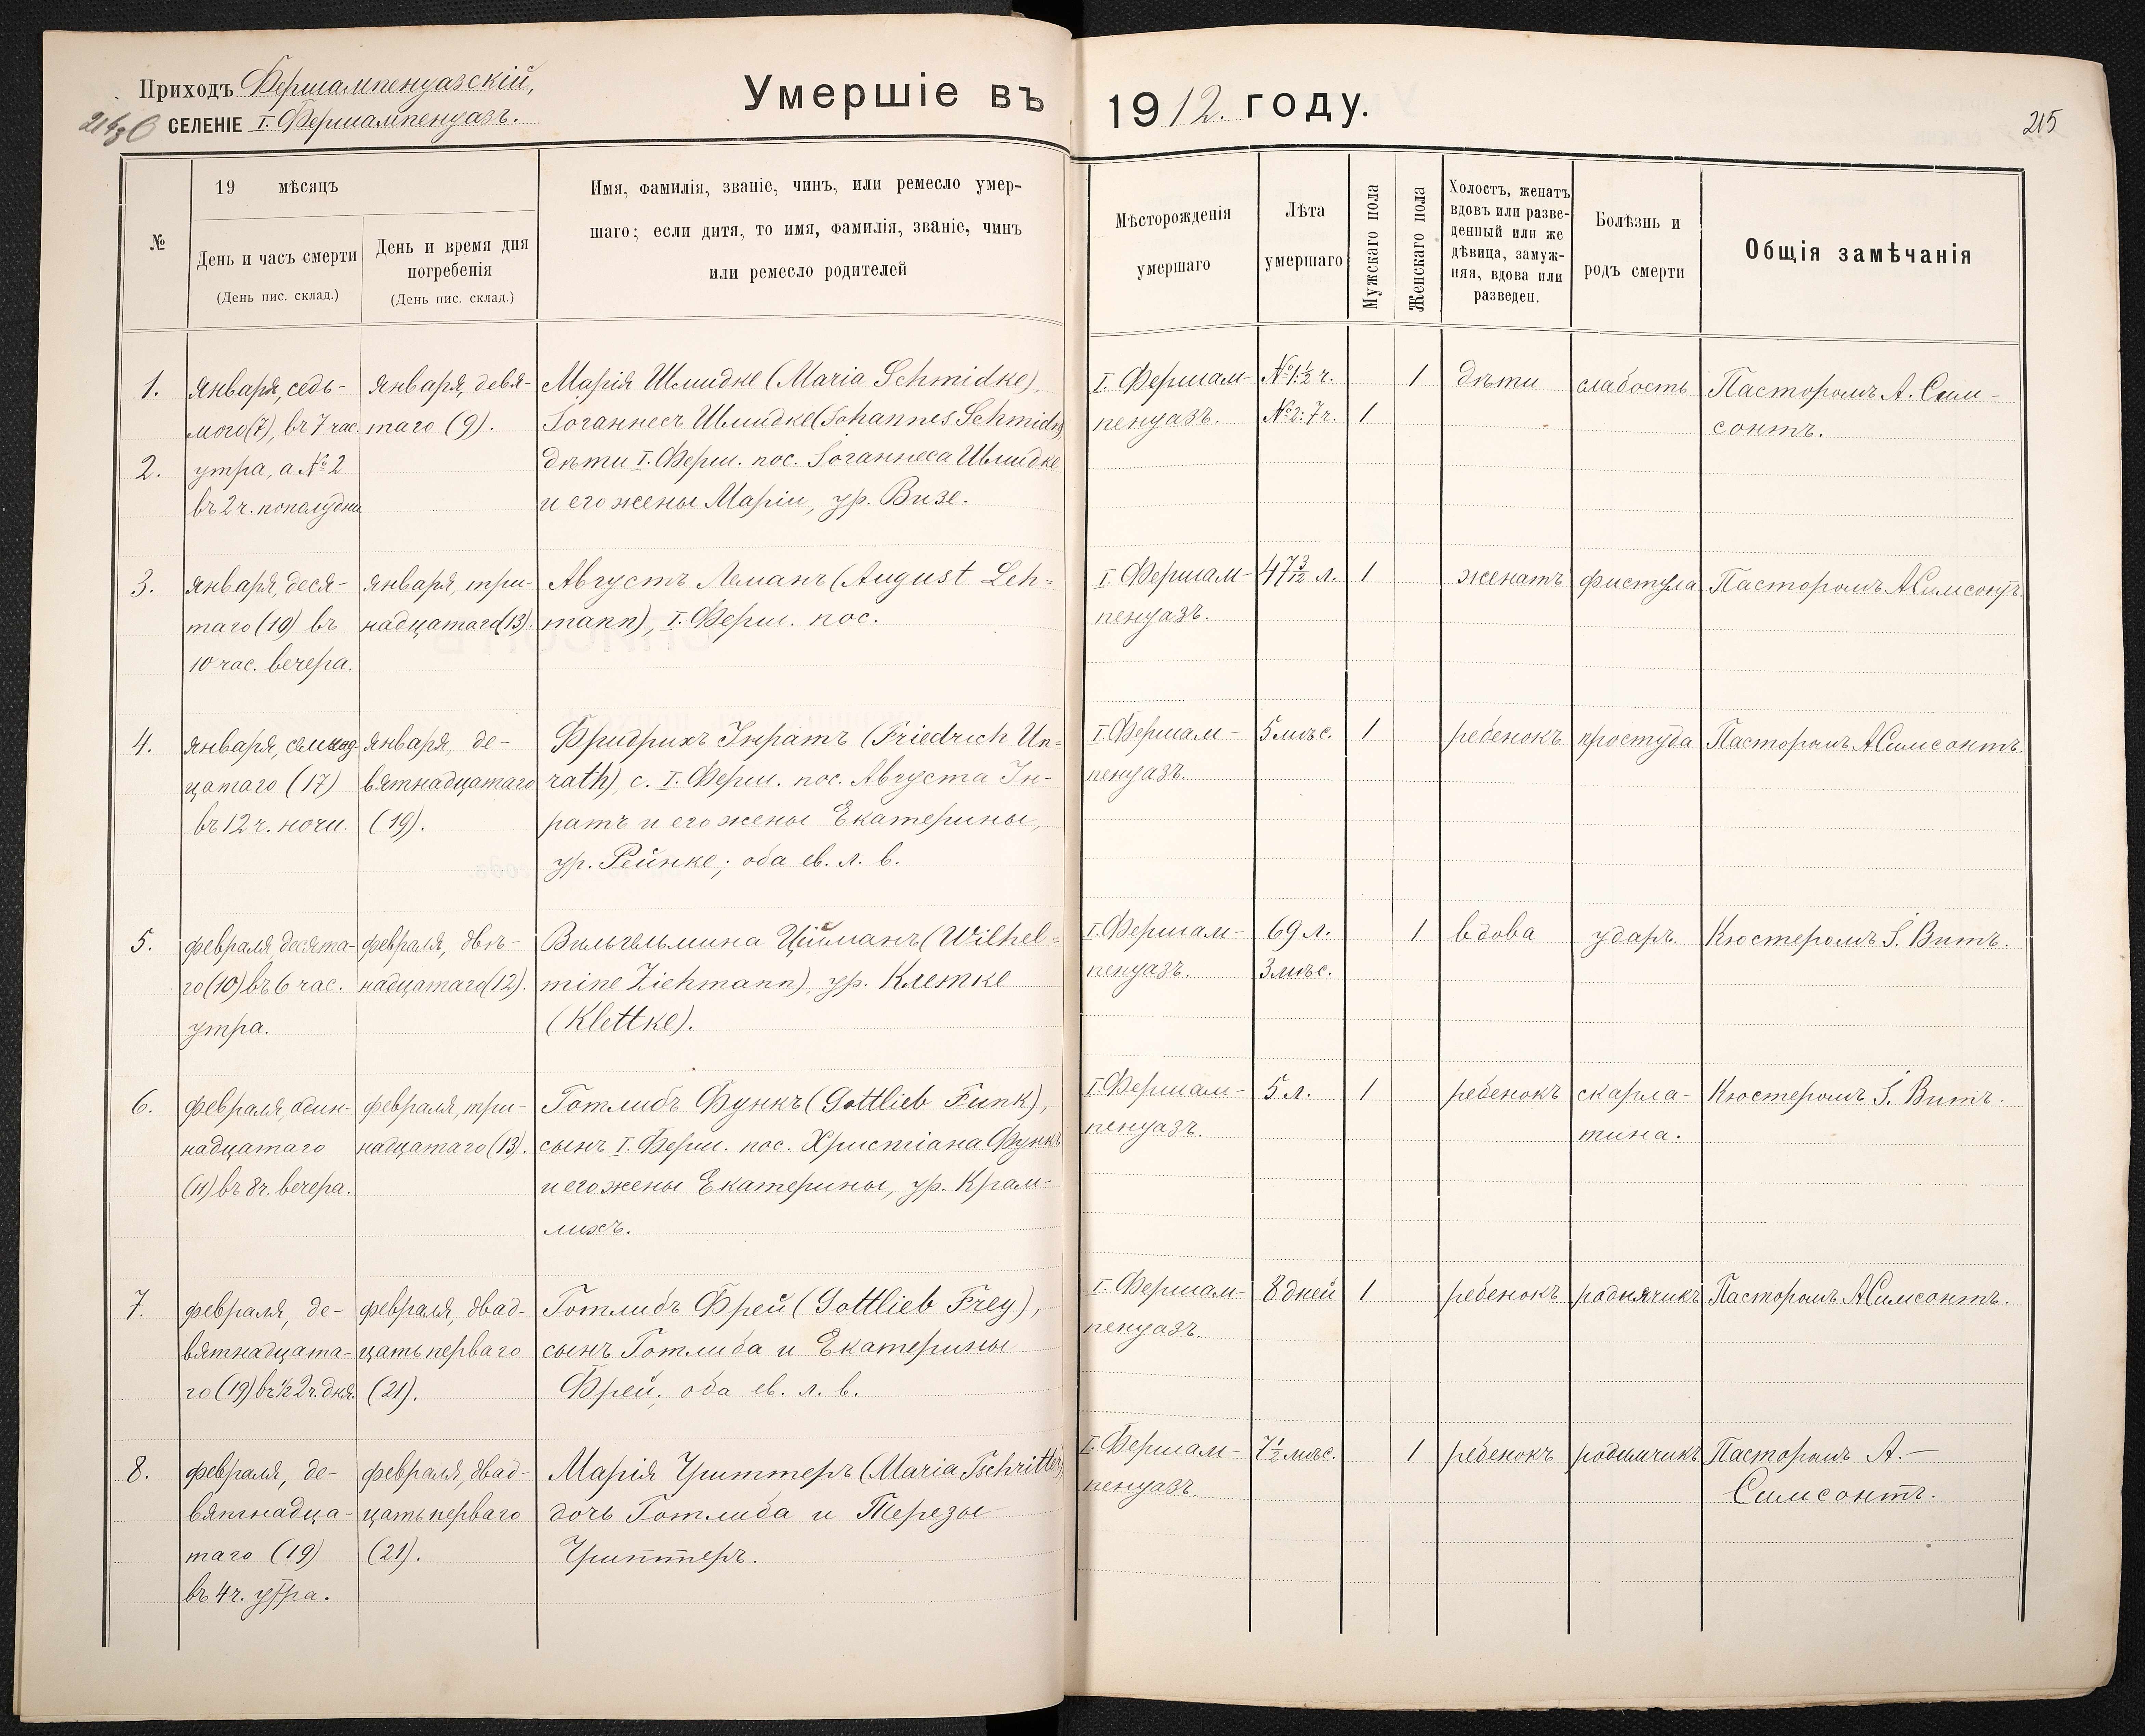 Приходъ Фершампенуазскій,
СЕЛЕНІЕ I. Фершампенуазъ.
Умершіе въ 1912. году.
215
№
19 мѣсяцъ
День и часъ смерти
(День пис. склад.)
День и время дня
погребенія
(День пис. склад.)
Имя, фамилія, званіе, чинъ, или ремесло умер-
шаго; если дитя, то имя, фамилія, званіе, чинъ
или ремесло родителей
Мѣсторожденія
умершаго
Лѣта
умершаго
Мужскаго пола
Женскаго пола
Холостъ, женатъ
вдовъ или разве-
денный или же
дѣвица, замуж-
няя, вдова или
разведен.
Болѣзнь и
родъ смерти
Общія замѣчанія
1.
января, седь-
мого (7), въ 7 час.
2.
утра, а № 2
въ 2 ч. пополудни
января, девя-
таго (9).
Марія Шмидке (Maria Schmidke),
Іоганнесъ Шмидке (Johannes Schmidke)
дѣти I. Ферш. пос. Іоганнеса Шмидке
и его жены Маріи, ур. Визе.
I. Фершам-
пенуазъ.
№1: ½ ч.
№2: 7 ч.
1
1
дѣти
слабость
Пасторомъ А. Сим-
сонтъ.
3.
января, деся-
таго (10) въ
10 час. вечера.
января, три-
надцатаго (13).
Августъ Леманъ (August Leh=
mann), I. Ферш. пос.
I. Фершам-
пенуазъ.
47 3/12 л.
1
женатъ
фистула
Пасторомъ А Симсонтъ.
4.
января, семнад-
цатаго (17)
въ 12 ч. ночи.
января, де-
вятнадцатаго
(19).
Фридрихъ Інратъ (Friedrich Un=
rath), с. I. Ферш. пос. Августа Ін-
ратъ и его жены Екатерины,
ур. Рейнке; оба ев. л. в.
I. Фершам-
пенуазъ.
5 мѣс.
1
ребенокъ
простуда
Пасторомъ А Симсонтъ.
5.
февраля десята-
го (10) въ 6 час.
утра.
февраля, двѣ-
надцатаго (12).
Вильгельмина Циманъ (Wilhel=
mine Ziehmann), ур. Клетке
(Klettke).
I. Фершам-
пенуазъ.
69 л.
3 мѣс.
1
вдова
ударъ.
Кюстеромъ І. Витъ.
6.
февраля, один-
надцатаго
(11) въ 8 ч. вечера.
февраля, три-
надцатаго (13).
Готлибъ Функъ (Gottlieb Funk),
сынъ I. Ферш. пос. Христіана Функъ
и его жены Екатерины, ур. Крам-
лихъ.
I. Фершам-
пенуазъ.
5 л.
1
ребенокъ
скарла-
тина.
Кюстеромъ І. Витъ.
7.
февраля, де-
вятнадцата-
го (19) въ ½ 2 ч. дня.
февраля, двад-
цать перваго
(21).
Готлибъ Фрей (Gottlieb Frey),
сынъ Готлиба и Екатерины
Фрей; оба ев. л. в.
I. Фершам-
пенуазъ.
8 дней
1
ребенокъ
роднячикъ
Пасторомъ А Симсонтъ.
8.
февраля, де-
вятнадца-
таго (19)
въ 4 ч. утра.
февраля, двад-
цать перваго
(21).
Марія Чриттеръ (Maria Tschritter)
дочь Готлиба и Терезы
Чриттеръ.
I. Фершам-
пенуазъ.
7 ½ мѣс.
1
ребенокъ
родимчикъ
Пасторомъ А. —
Симсонтъ.